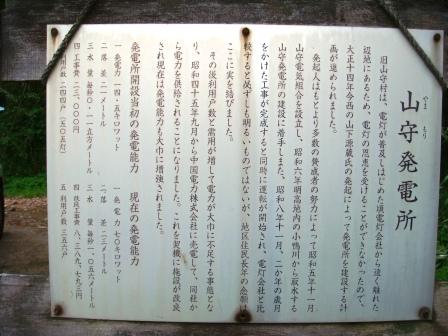 やま もり
山守発電所
旧山守村は、電灯が普及しはじめた頃電灯会社から遠く離れた
辺地にあるため、電灯の恩恵を受けることができなかったので、
大正十四年今西の山下源蔵氏の発起によって発電所を建設する計
画が進められました。
発起人はもとより多数の賛成者の努力によって昭和五年十一月
山守電気組合を設立し、昭和六年明高地内の小鴨川から取水する
山守発電所の建設に着手しました、昭和八年十一月、二か年の歳月
をかけた工事が完成すると同時に運転が開始され、電灯会社と比
較すると必ずしも明るいものではないが、地区住民長年の念願は
ここに実を結びました。
その後利用戸数と需用が増して電力が大巾に不足する事態とな
り、昭和四十五年九月から中国電力株式会社に売電して、同社か
ら電力を供給されることになりました。これを契機に施設が改良
され現在は発電能力も大巾に増強されました。
発電所開設当初の発電能力 現在の発電能力
一 発電力 一四・五キロワット 一 発電力 七〇キロワット
二 落差 二一メートル 二 落差 二三メートル
三 水量 毎秒〇・一一立方メートル 三 水量 毎秒一・〇五六メートル
四 工事費 二三、〇〇〇円 四 改良工事費 八、三八九、七九三円
利用戸数 二四四戸(五〇五灯) 五 利用戸数 三五六戸